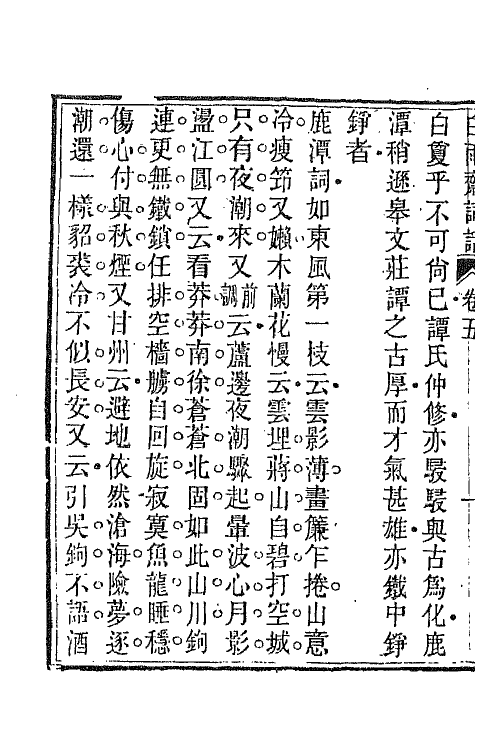 白雨齋詞話 卷五
白敻乎不可尙已譚氏仲修亦駸駸與古爲化鹿
潭稍遜皋文莊譚之古厚而才氣甚雄亦鐵中錚
錚者
鹿潭詞如東風第一枝云雲影薄畫簾乍捲山意
冷瘦筇又嬾木蘭花慢云雲埋蔣山自碧打空城
只有夜潮來又前調云蘆邊夜潮驟起暈波心月影
盪江圓又云看莽莽南徐蒼蒼北固如此山川鉤
連更無鐵鎖任排空檣艣自回旋寂寞魚龍睡穩
傷心付與秋煙又甘州云避地依然滄海險夢逐
潮還一樣貂裘冷不似長安又云引吳鉤不語酒